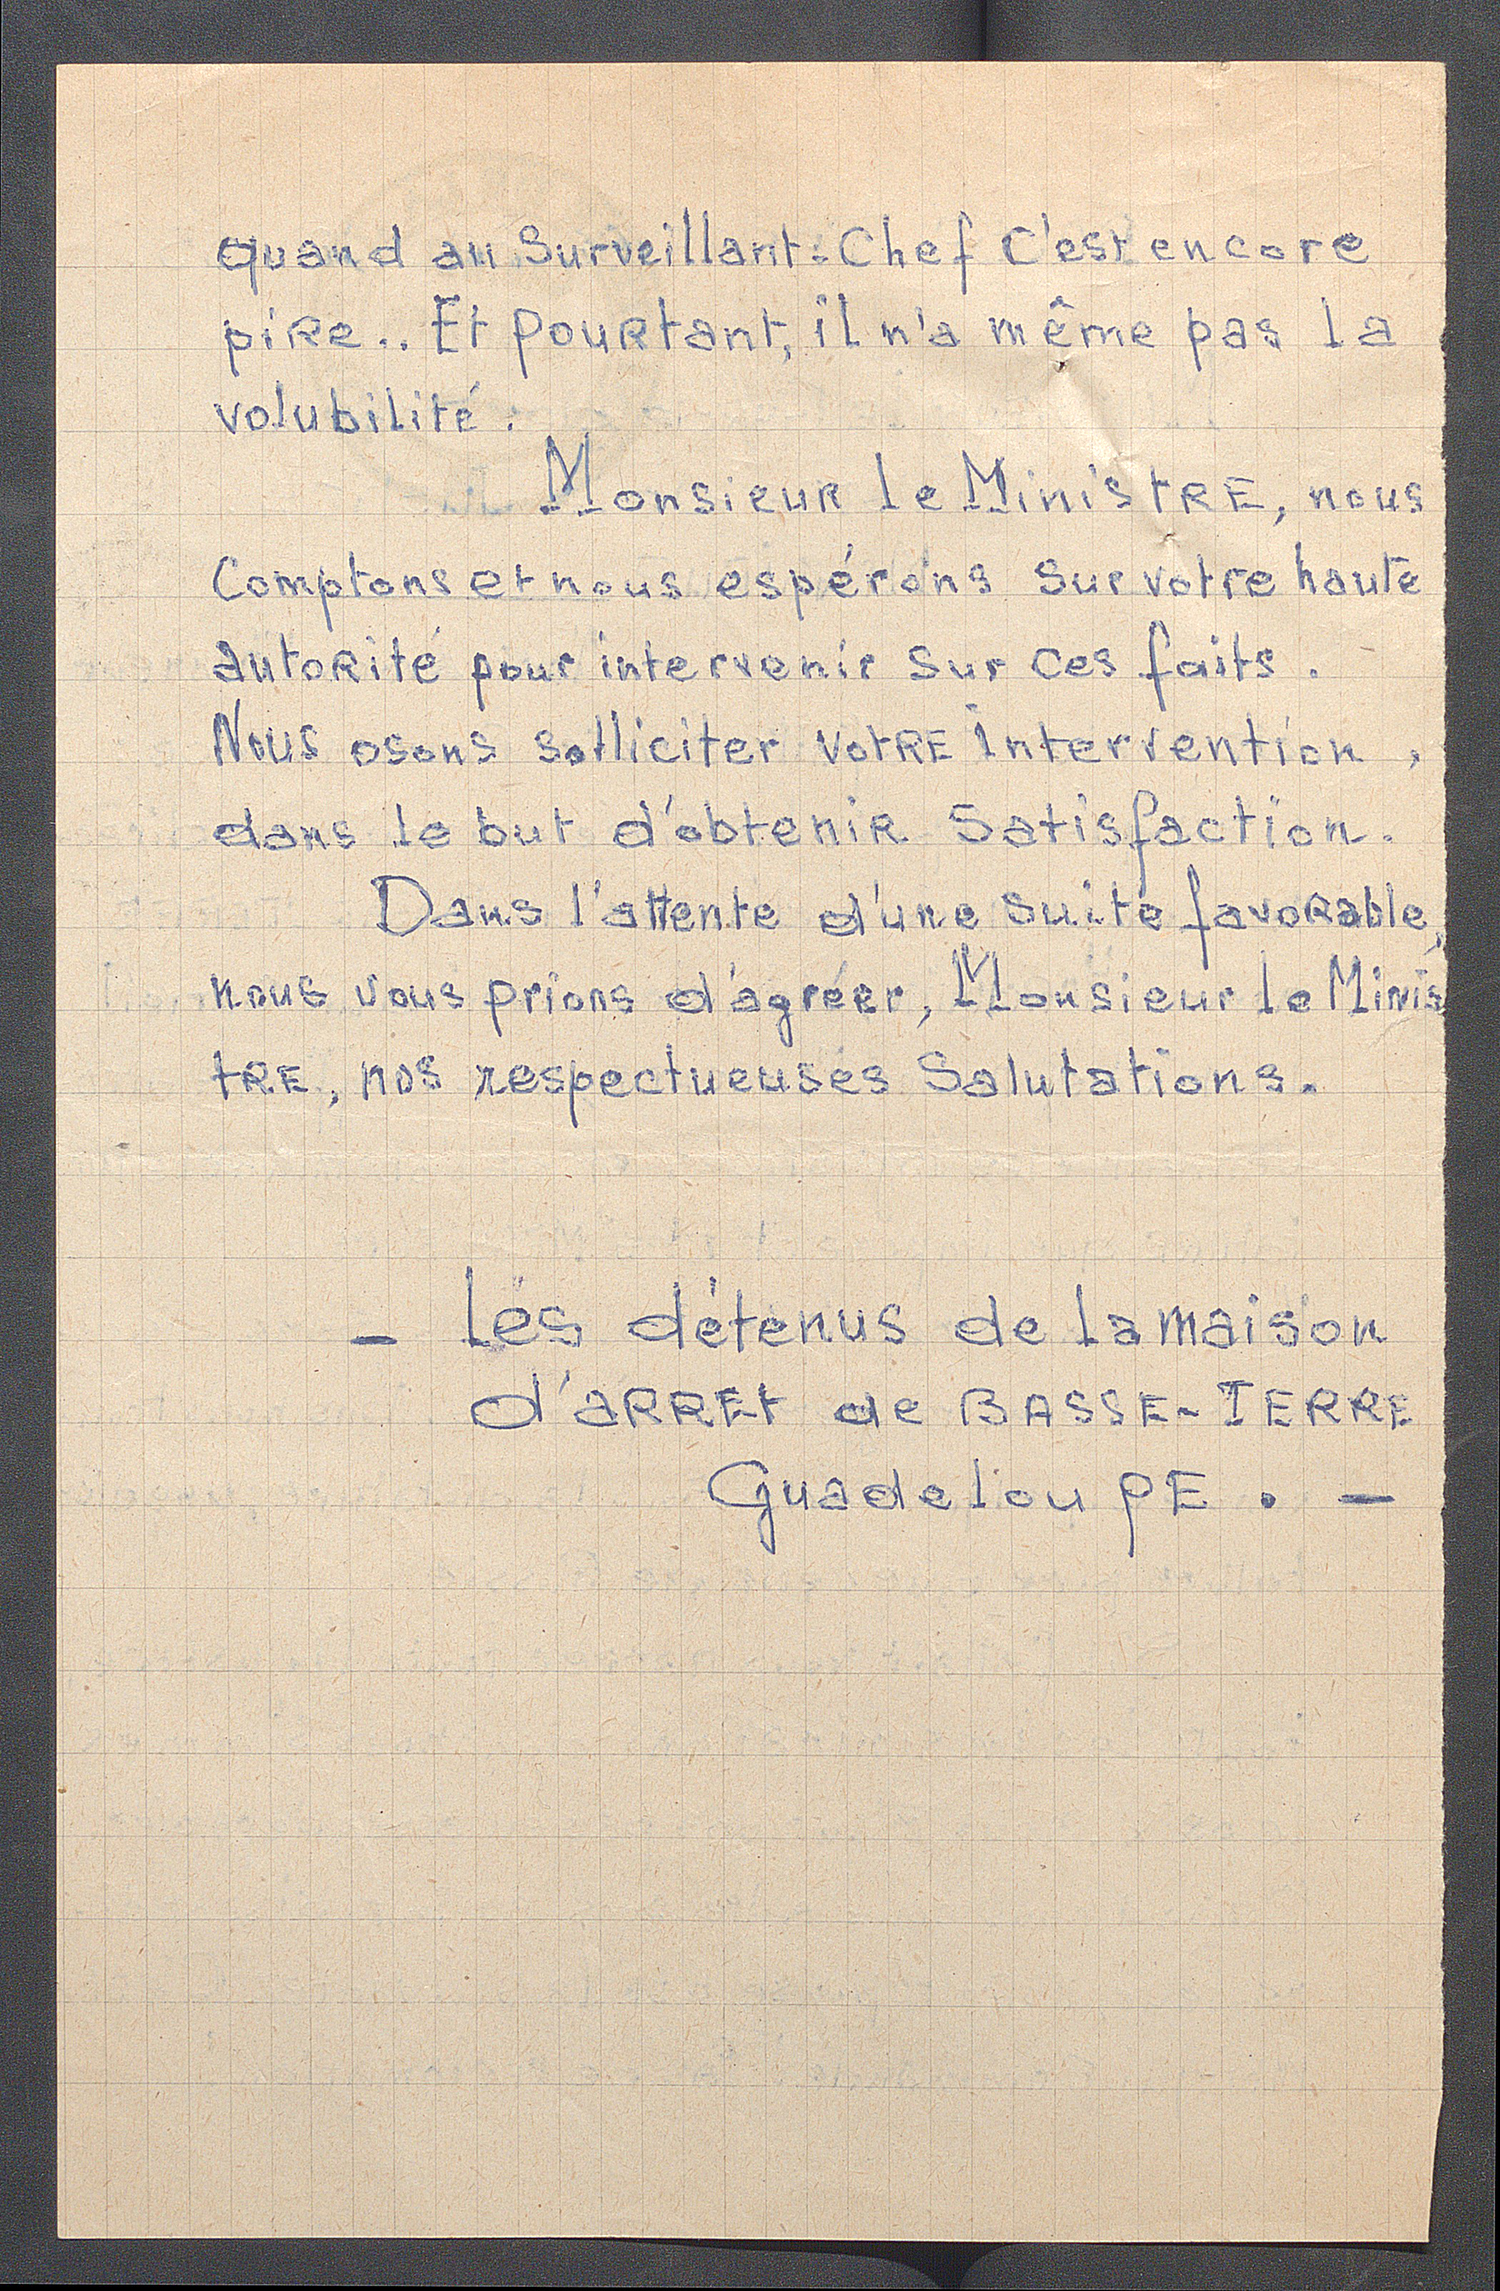 quand au Surveillant-Chef c'est encore
piRe.. Et pouRtant, il n'a même pas la
volubilité.
MonsieuR le MinistRE, nous
Comptons et nous espérons sur votre haute
autoRité pour intervenir sur ces faits.
Nous osons solliciter VotRE intervention,
dans le but d'obteniR Satisfaction.
Dans l'attente d'une suite favoRable,
nous vous prions d'agréer, Monsieur le Minis
tRE, nos respectueuses Salutations.
- Les détenus de la maison
d'aRREt de BASSE-TERRE
GuadelouPE. -